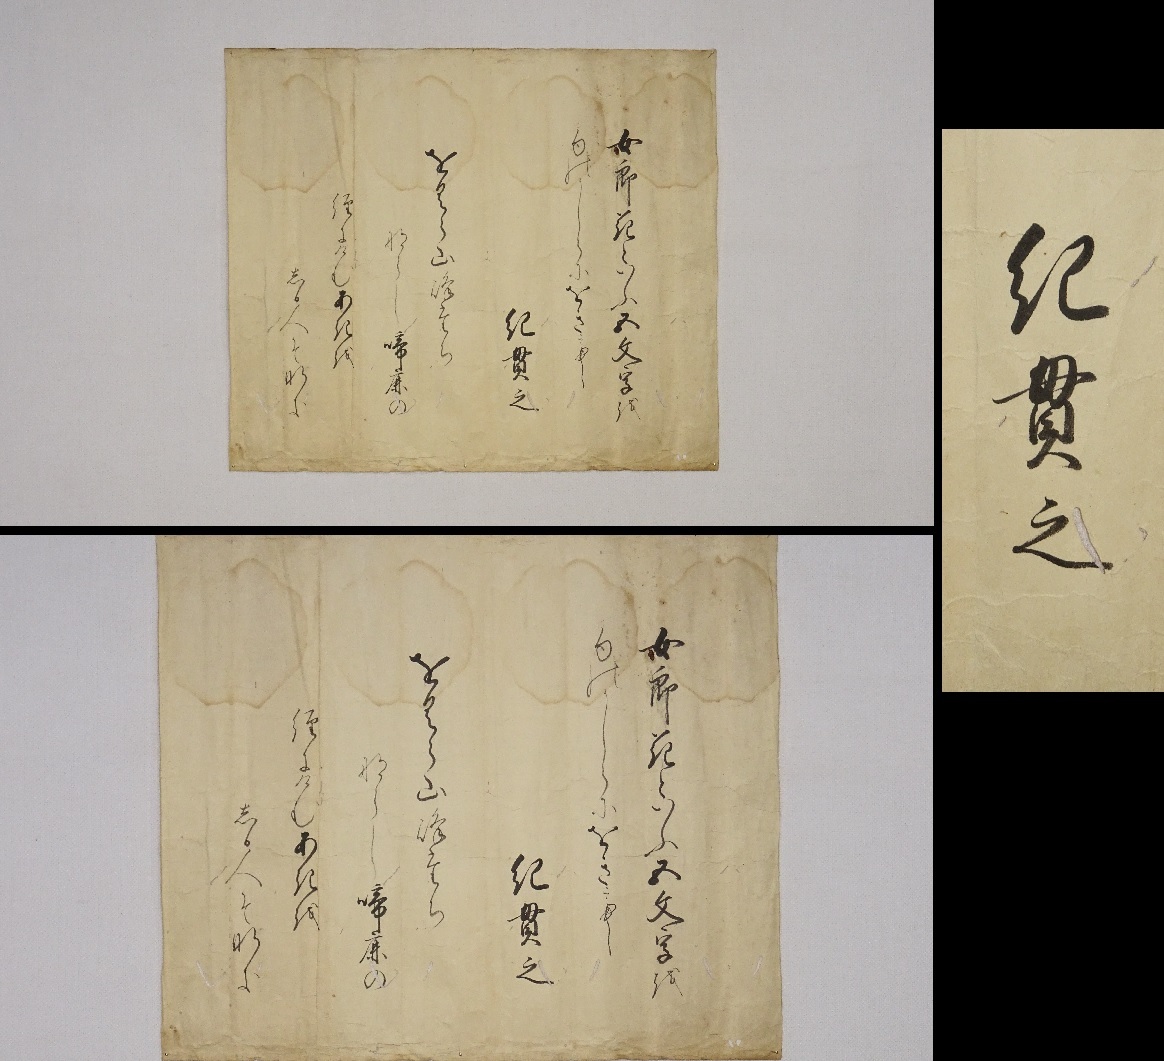 女郎花といふ五文字を
句のかしらにを
紀貫之
をくら山峰たち
ならし啼鹿の
経にけむあきを
しる人そなき
女郎花といふ五文字を
句のかしらにを
紀貫之
をくら山峰たち
ならし啼鹿の
経にけむあきを
しる人そなき
紀貫之